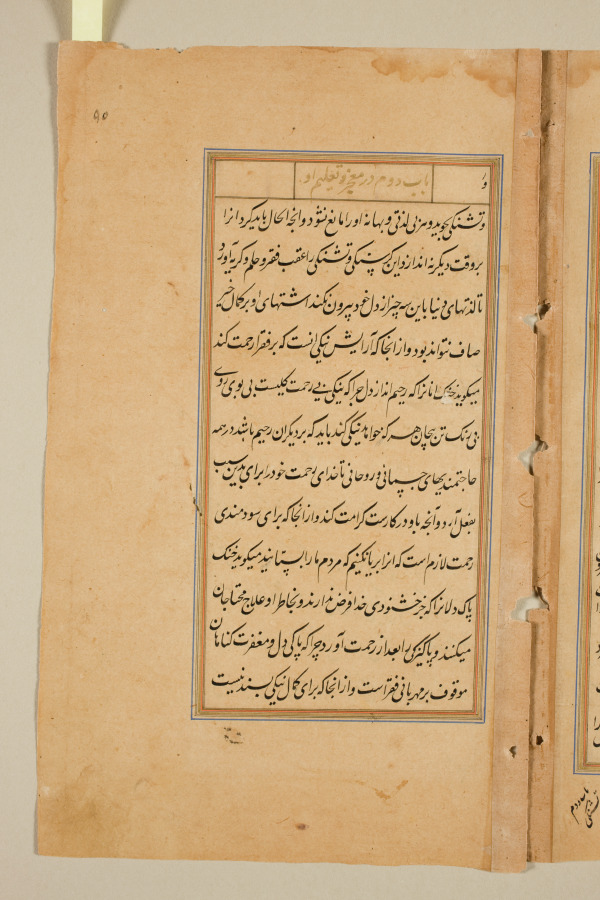 ۹۵
باب دوم در معجزه و تعلیم او
و تشنگی جوید و هر بی لذتی و بهانه او را مانع نشود و آنچه الحال باید کرد انرا
بر وقت دیگر نه اندازد این گرسنگی و تشنگی را عقب فقر و حلم و گریه آورد
تا لذتهای دنیا باین سه چیز از دل خود بیرون نکند اشتهای او بر کمال خیر
صاف نتواند بود و از انجا که آرایش نیکی انست که بر فقرا رحمت کند
میگوید خنک انانرا که رحیم اند از دل چرا که نیکی بی رحمت کلیست بی بوی روی
بی رنگ تن بیجان هر که خواهد نیکی کند باید که بر دیگران رحیم باشد در همه
حاجتمندیهای جسمانی و روحانی تا خدای رحمت خود را برای بدین سبب
بفعل آرد و آنچه باو در کارست کرامت کند و از انجا که برای سودمندی
رحمت لازم است که انرا بریا نکنیم که مردم ما را بستانید میگوید خنک
پاک دلانرا که جز خشنودی خدا غرض ندارند و بخاطر او علاج محتاجان
میکنند و پاکیزگی را بعد از رحمت آورد چرا که پاکی دل و مغفرت گناهان
موقوف بر مهربانی فقرا است و از انجا که برای کمال نیکی بسند نیست
باب دوم
تشنگی